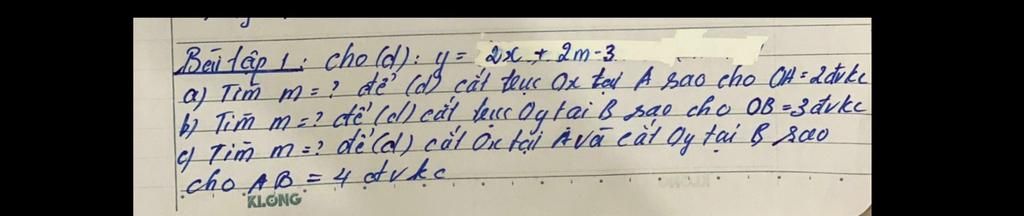 Bài tập 1: cho (d): y = 2x + 2m-3
a) Tìm m = ? để (d) cắt trục Ox tại A sao cho OA = 2đvkc
b) Tìm m = ? để (d) cắt trục Oy tại B sao cho OB = 3đvkc
c) Tìm m = ? để (d) cắt Ox tại A và cắt Oy tại B sao
cho AB = 4 đvkc
KLONG